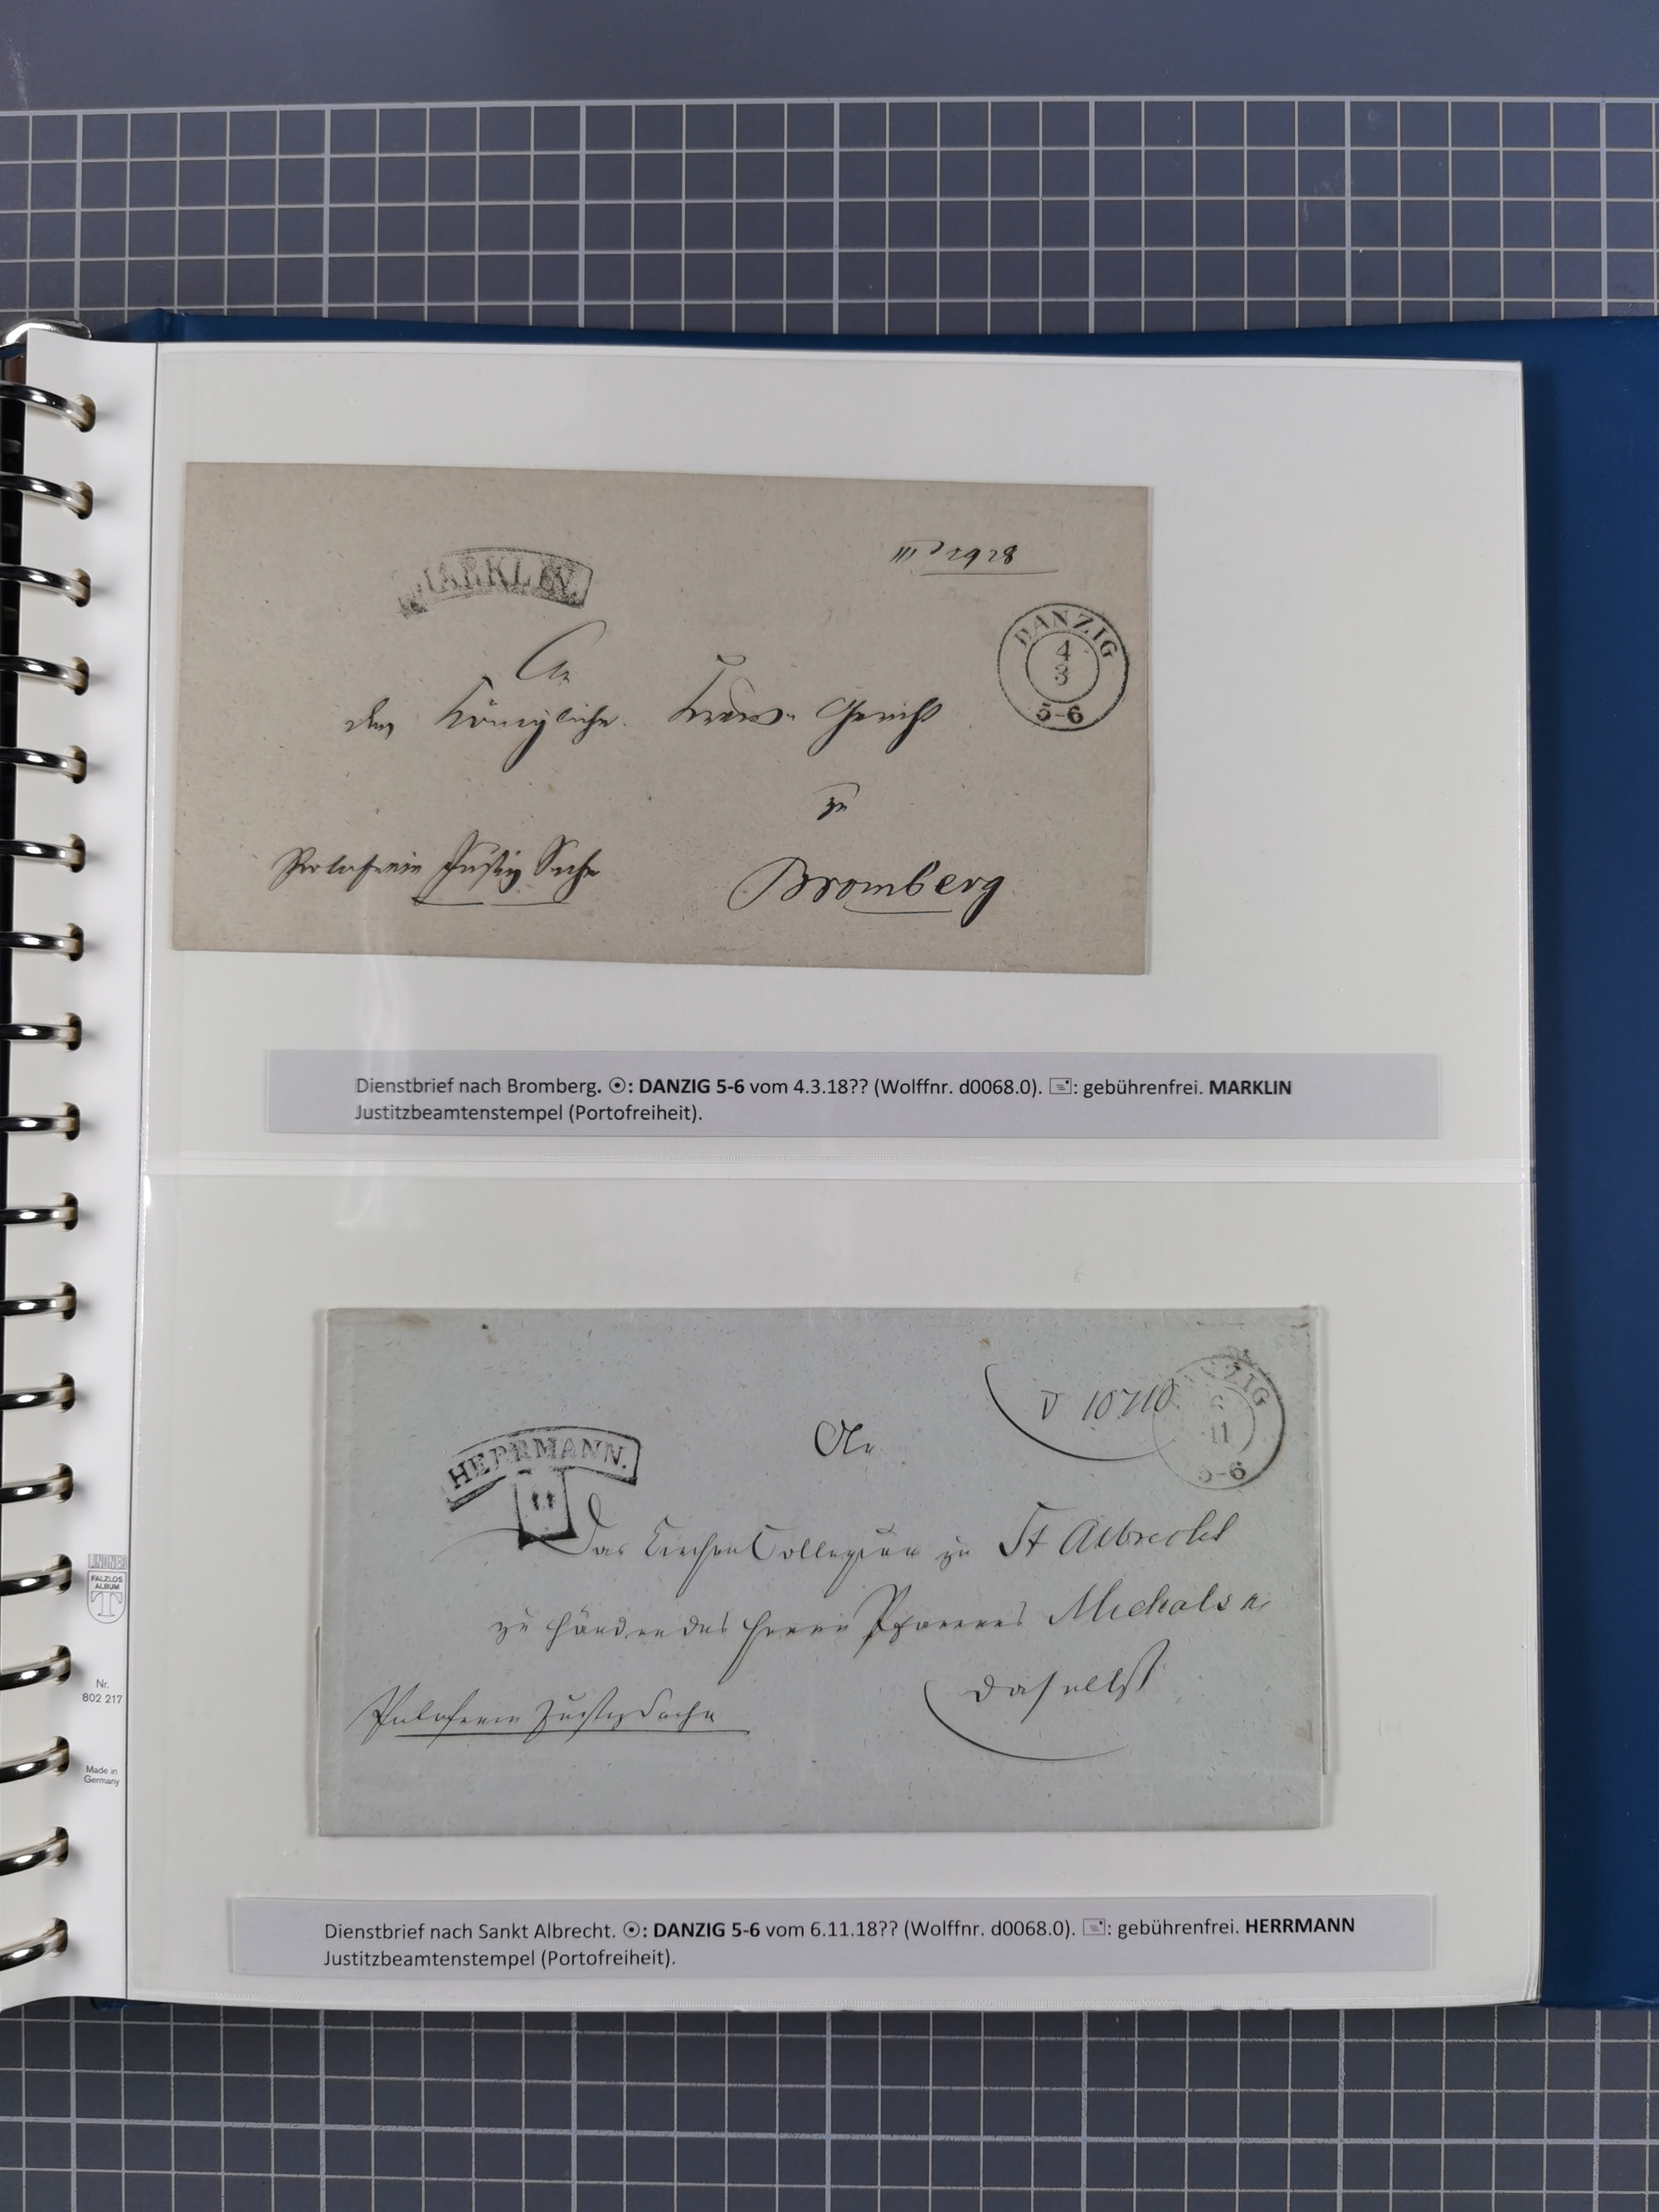 MARKLIN.
III J 2928
DANZIG
4
3
5-6
An
das Königliche Kreis-Gericht
zu
Bromberg
Portofreie Justiz Sache
Dienstbrief nach Bromberg. ☉: DANZIG 5-6 vom 4.3.18?? (Wolffnr. d0068.0). 🖃: gebührenfrei. MARKLIN
Justitzbeamtenstempel (Portofreiheit).
V 10710
DANZIG
6
11
5-6
HERRMANN.
11
An
Das Kirchen Collegium zu St Albrecht
zu Händen des Herrn Pfarrers Michalski
daselbst
Portofreie Justiz Sache
Dienstbrief nach Sankt Albrecht. ☉: DANZIG 5-6 vom 6.11.18?? (Wolffnr. d0068.0). 🖃: gebührenfrei. HERRMANN
Justitzbeamtenstempel (Portofreiheit).
LINDNER
FALZLOS
ALBUM
T
Nr.
802 217
Made in
Germany